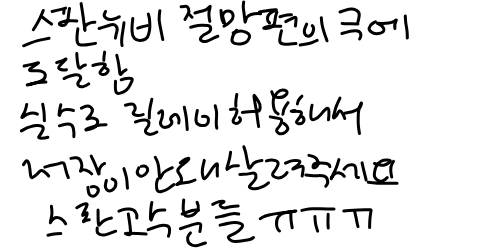 스콴뉴비 절망편의 극에
도달함
실수로 릴레이허용해서
저장이안되니살려주세요
스콴고수분들ㅠㅠㅠ